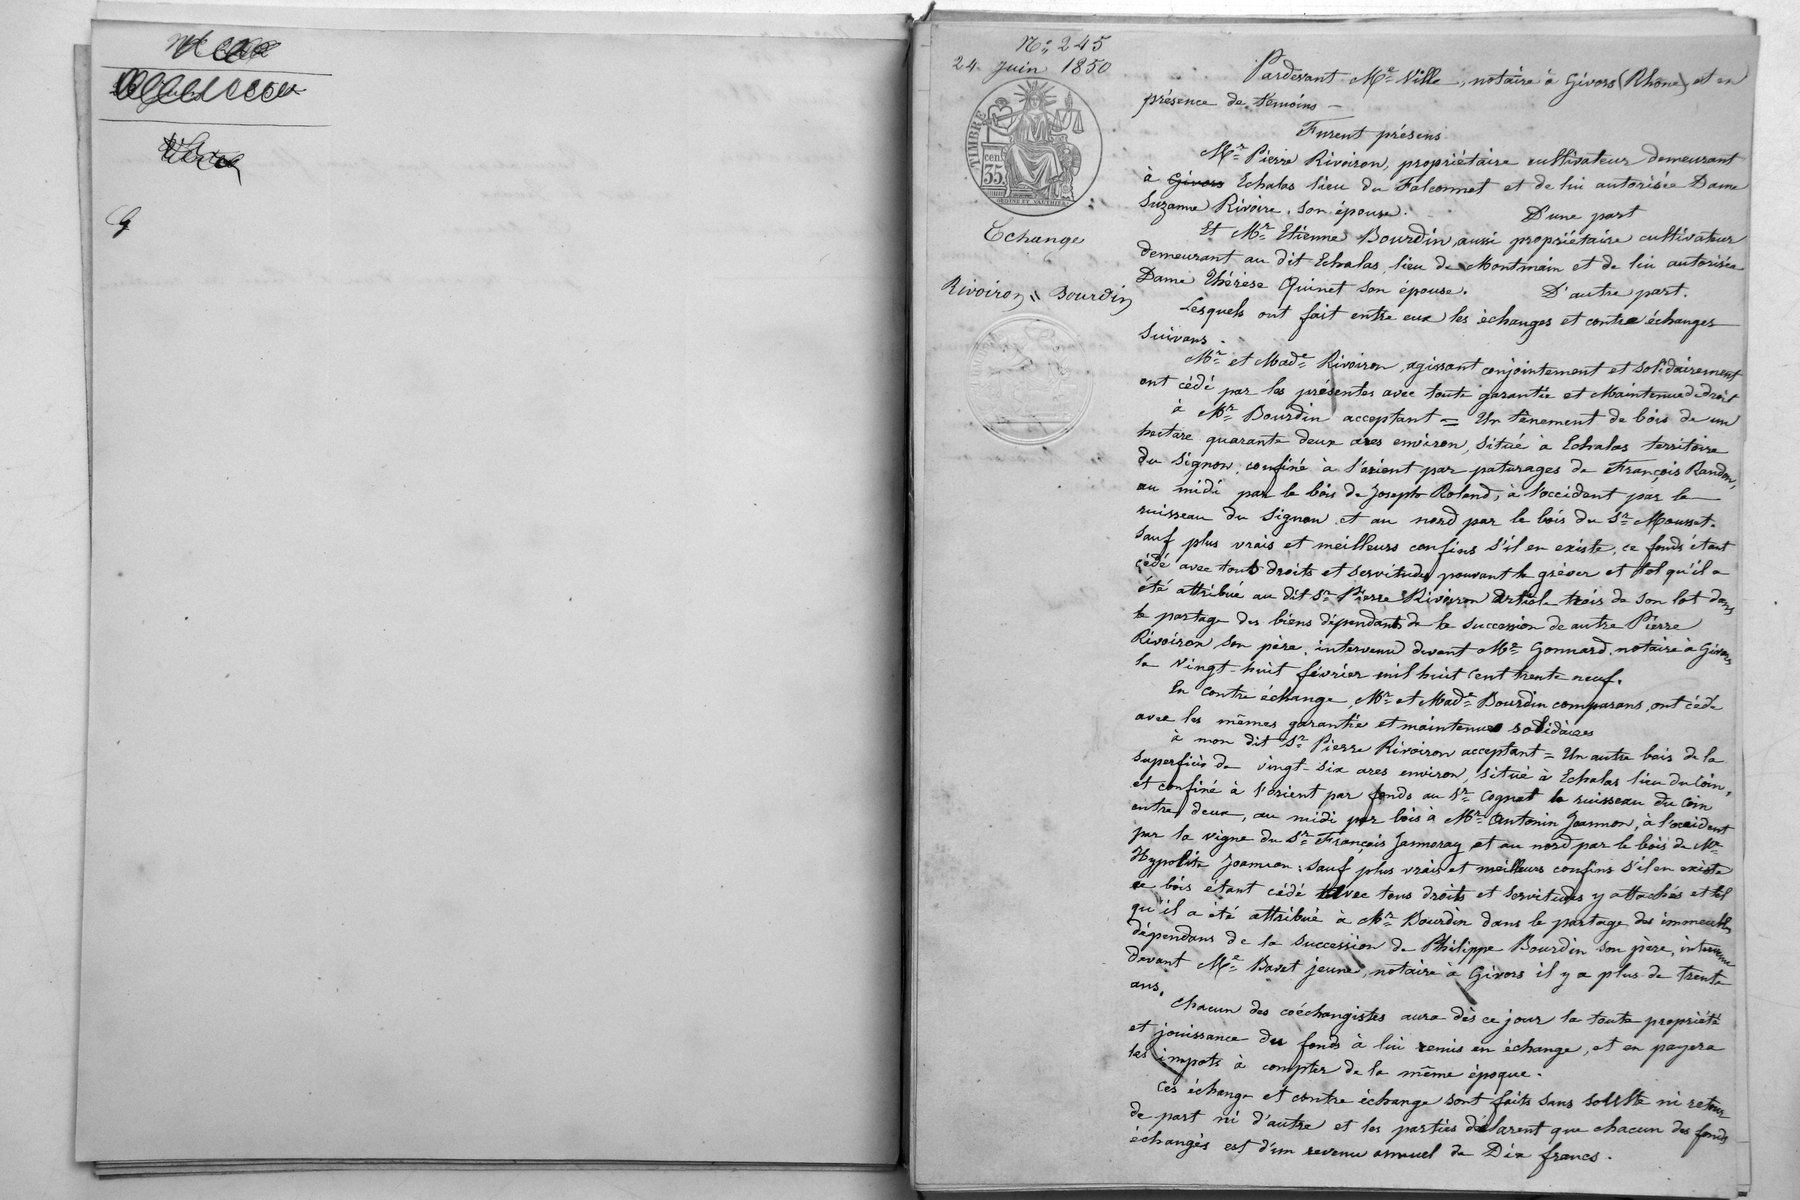 G
N° 245
24 juin 1850
TIMBRE
cen.
35
Echange
Rivoiron = Bourdin
Pardevant Me Ville, notaire à Givors (Rhône) et en
présence de témoins —
Furent présens
Mr Pierre Rivoiron, propriétaire cultivateur demeurant
à Givors Echalas lieu du Falconnet et de lui autorisée Dame
Suzanne Rivoire, son épouse. D'une part
Et Mr Etienne Bourdin, aussi propriétaire cultivateur
demeurant au dit Echalas, lieu de Montmain et de lui autorisée
Dame Thérèse Quinet son épouse. D'autre part.
Lesquels ont fait entre eux les échanges et contre échanges
suivans.
Mr et Made Rivoiron, agissant conjointement et solidairement
ont cédé par les présentes avec toute garantie et Maintenue de droit
à Mr Bourdin acceptant = Un tènement de bois de un
hectare quarante deux ares environ, situé à Echalas territoire
du Signon, confiné à l'orient par paturages de François Randon,
au midi par le bois de Joseph Roland, à l'occident par le
ruisseau du Signon et au nord par le bois du Sr Mousset.
Sauf plus vrais et meilleurs confins s'il en existe, ce fonds étant
cédé avec tous droits et servitudes pouvant le gréver et tel qu'il a
été attribué au dit Sr Pierre Rivoiron article trois de son lot dans
le partage des biens dépendants de la succession de autre Pierre
Rivoiron son père, intervenu devant Me Gonnard, notaire à Givors
le vingt-huit février mil huit cent trente neuf.
En contre échange, Mr et Made Bourdin comparans, ont cédé
avec les mêmes garantie et maintenue solidaires
à mon dit Sr Pierre Rivoiron acceptant = Un autre bois de la
superficie de vingt-six ares environ, situé à Echalas lieu du Coin,
et confiné à l'orient par fonds au Sr Cognat le ruisseau du Coin
entre deux, au midi par bois à Mr Antonin Joannon, à l'occident
par la vigne du Sr François Janneray et au nord par le bois de Mr
Hypolite Joannon; sauf plus vrais et meilleurs confins s'il en existe
ce bois étant cédé avec tous droits et servitudes y attachés et tel
qu'il a été attribué à Mr Bourdin dans le partage des immeubles
dépendans de la succession de Philippe Bourdin son père, intervenu
devant Me Bavet jeune, notaire à Givors il y a plus de trente
ans.
Chacun des coéchangistes aura dès ce jour la toute propriété
et jouissance des fonds à lui remis en échange, et en payera
les impots à compter de la même époque.
Ces échange et contre échange sont faits sans soulte ni retour
de part ni d'autre et les parties déclarent que chacun des fonds
échangés est d'un revenu annuel de Dix francs.